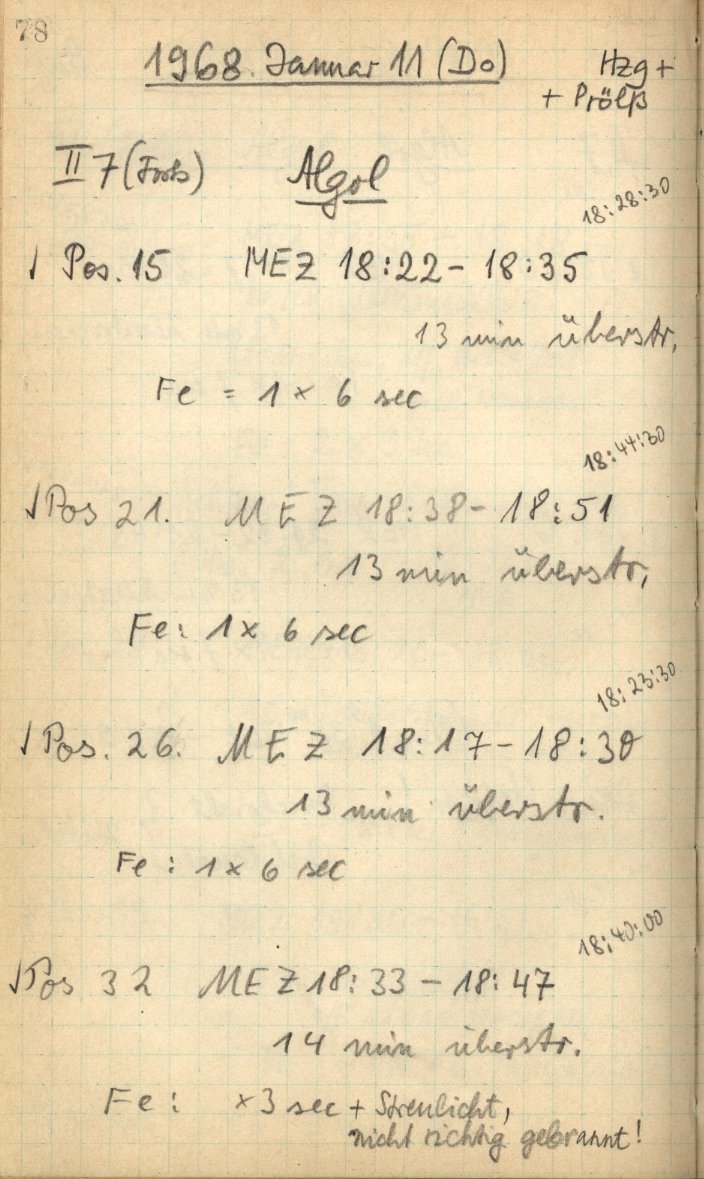 78
1968 Januar 11 (Do)
Hzg +
+ Prölß
II 7 (Frots) Algol
18:28:30
√ Pos. 15 MEZ 18:22 - 18:35
13 min überstr.
Fe = 1 × 6 sec
18:44:30
√ Pos 21. MEZ 18:38 - 18:51
13 min überstr.
Fe: 1 × 6 sec
18:23:30
√ Pos. 26. MEZ 18:17 - 18:30
13 min überstr.
Fe: 1 × 6 sec
18:40:00
√ Pos 32 MEZ 18:33 - 18:47
14 min überstr.
Fe: × 3 sec + Streulicht,
nicht richtig gebrannt!